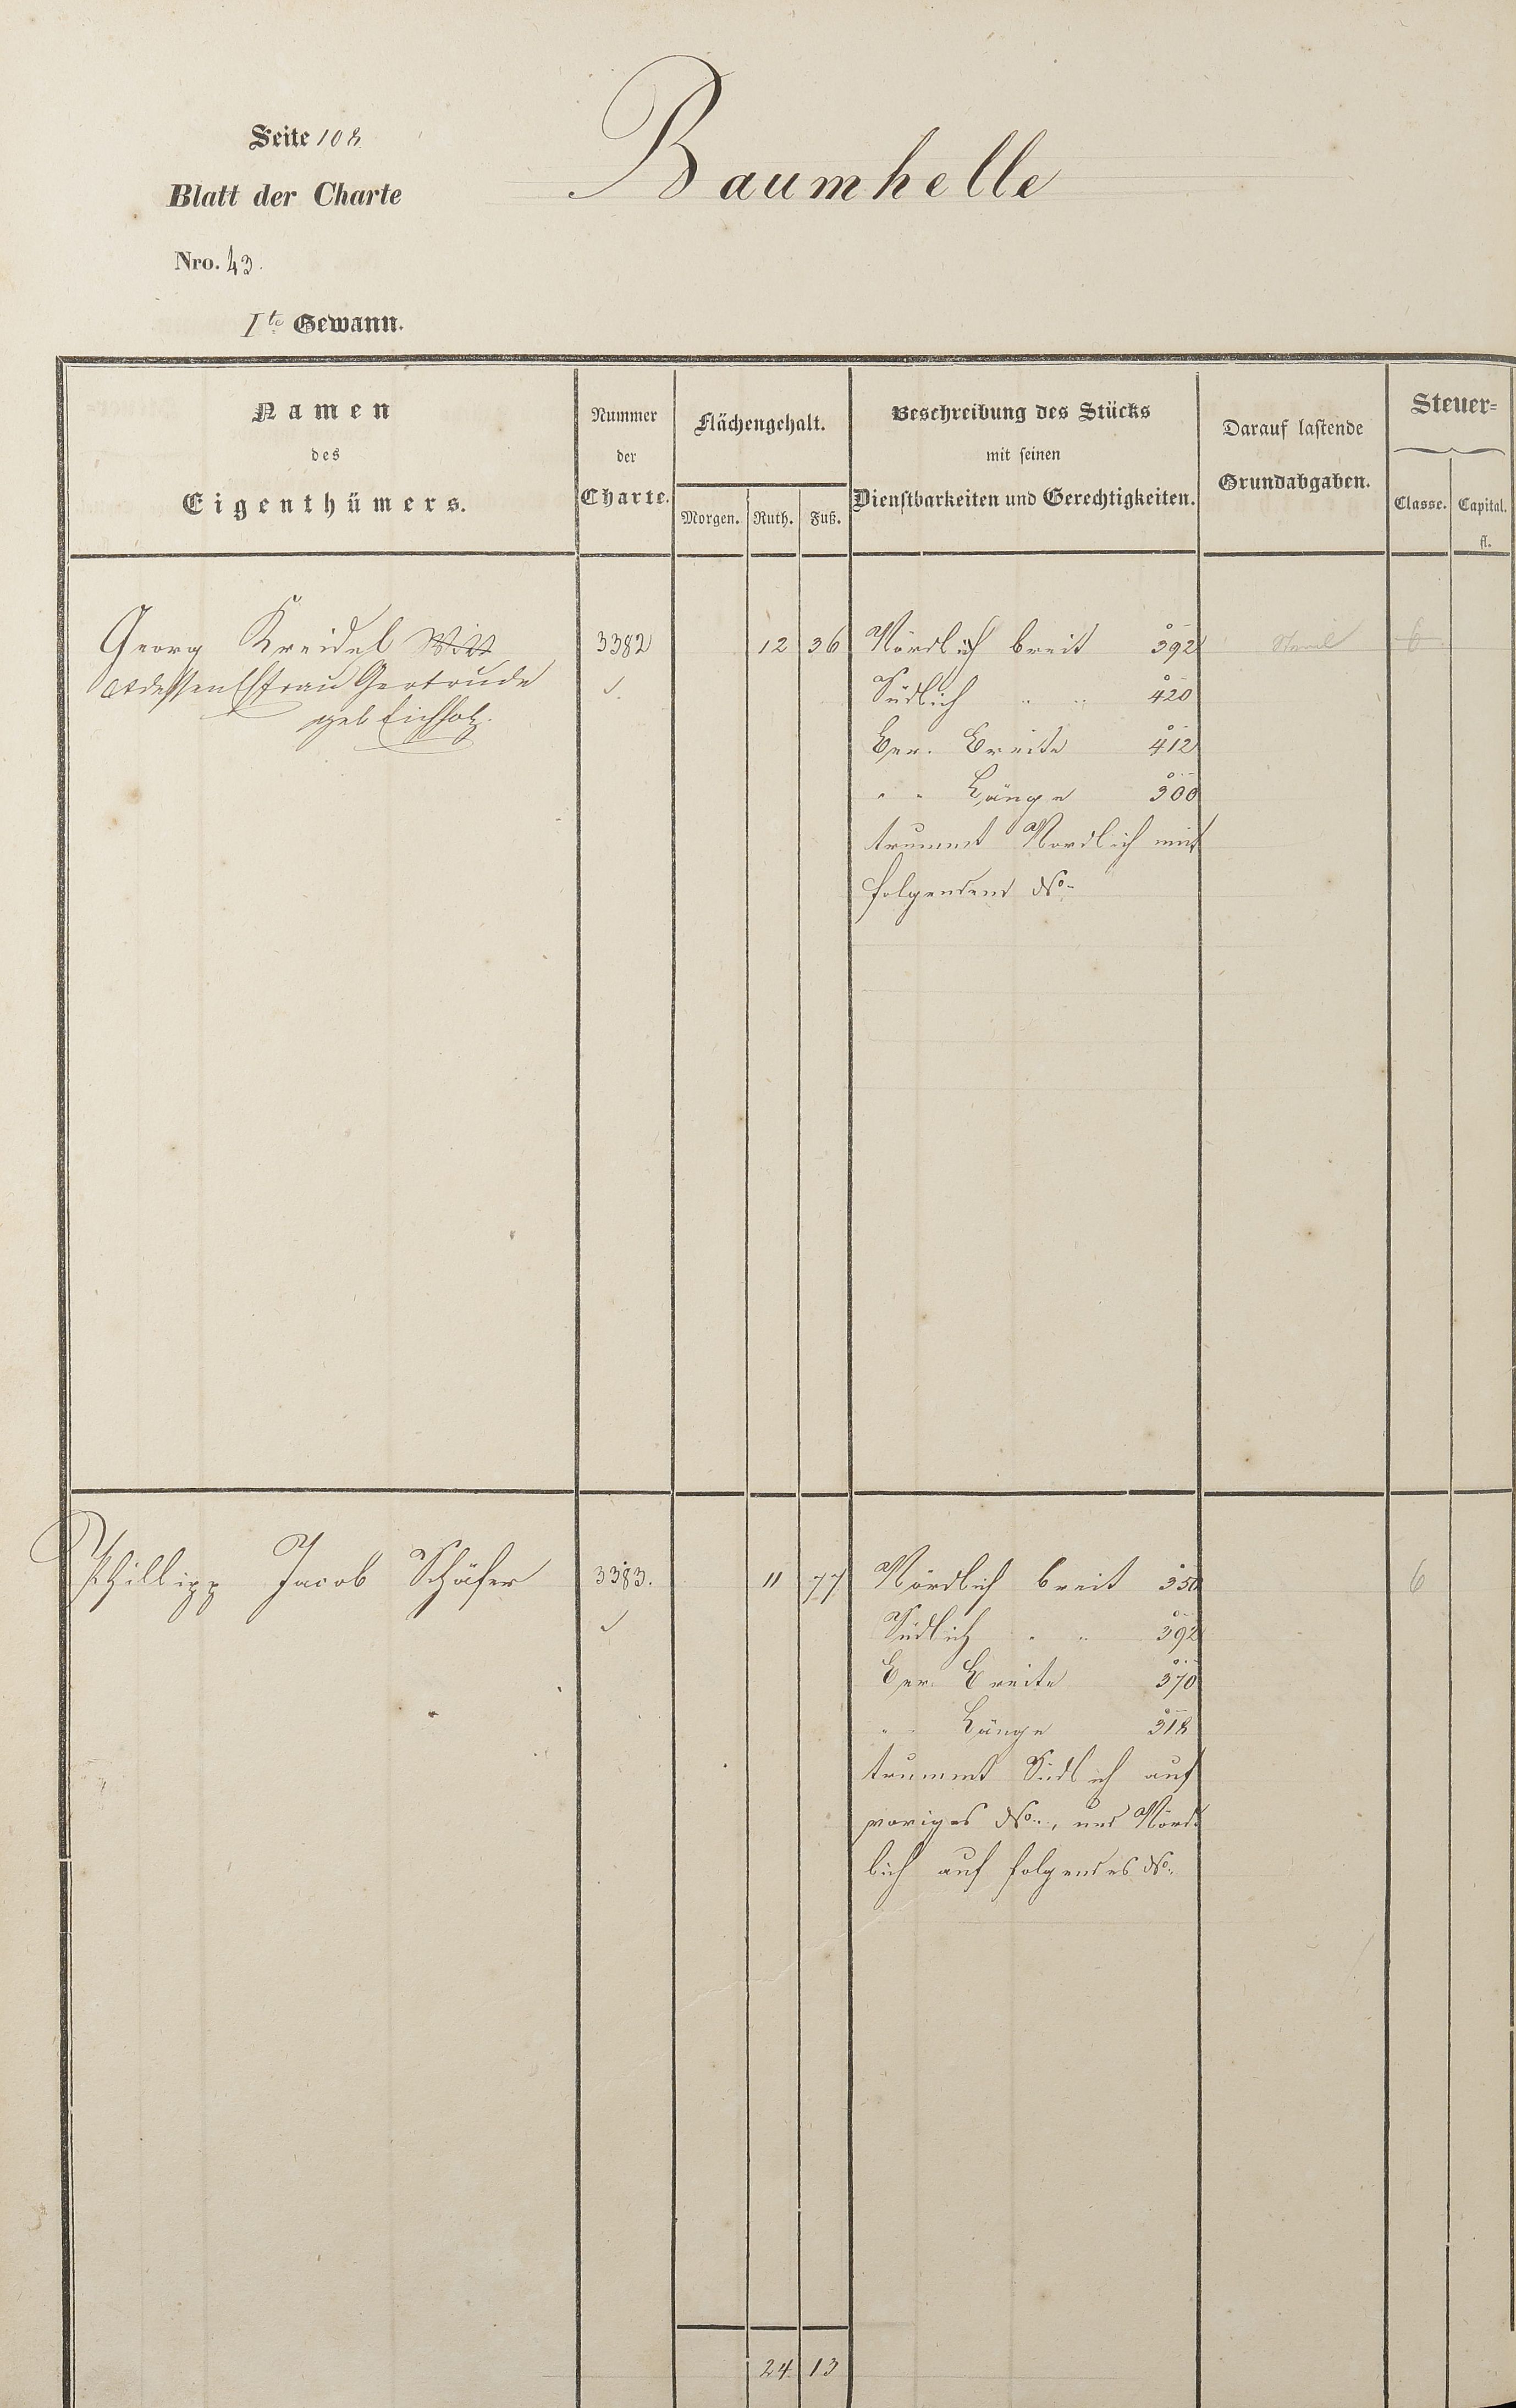 Seite 108
Baumhelle
Blatt der Charte
Nro. 43.
Ite Gewann.
Namen des Eigenthümers.
Nummer der Charte.
Flächengehalt.
Morgen. Ruth. Fuß.
Beschreibung des Stücks mit seinen Dienstbarkeiten und Gerechtigkeiten.
Darauf lastende Grundabgaben.
Steuer=
Classe. Capital.
fl.
Georg Kreidel Witt 3382 12 36 Nördlich breit 392 6
et dessen Ehfrau Gertrude Südlich " " 420
geb Eichholz. Ger. Breite 412
" " Länge 300
trummt Nordlich mit
folgendem No
Phillipp Jacob Schäfer 3383. 11 77 Nördlich breit 350 6
Südlich " " 392
Ger. Breite 370
" " Länge 318
trummt Südlich auf
voriges No., und Nörd
lich auf folgendes No.
24 13